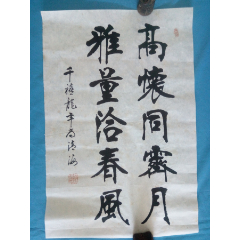 高怀同霽月
雅量洽春風
千禧龍年为清海